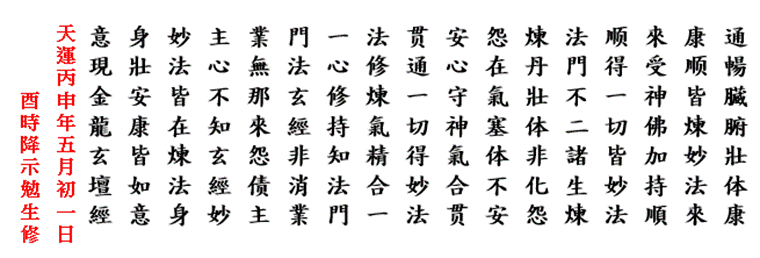 通暢臟腑壯体康
康顺皆煉妙法來
來受神佛加持順
顺得一切皆妙法
法門不二諸生煉
煉丹壯体非化怨
怨在氣塞体不安
安心守神氣合贯
贯通一切得妙法
法修煉氣精合一
一心修持知法門
門法玄經非消業
業無那來怨债主
主心不知玄經妙
妙法皆在煉法身
身壯安康皆如意
意現金龍玄壇經
天運丙申年五月初一日
酉時降示勉生修